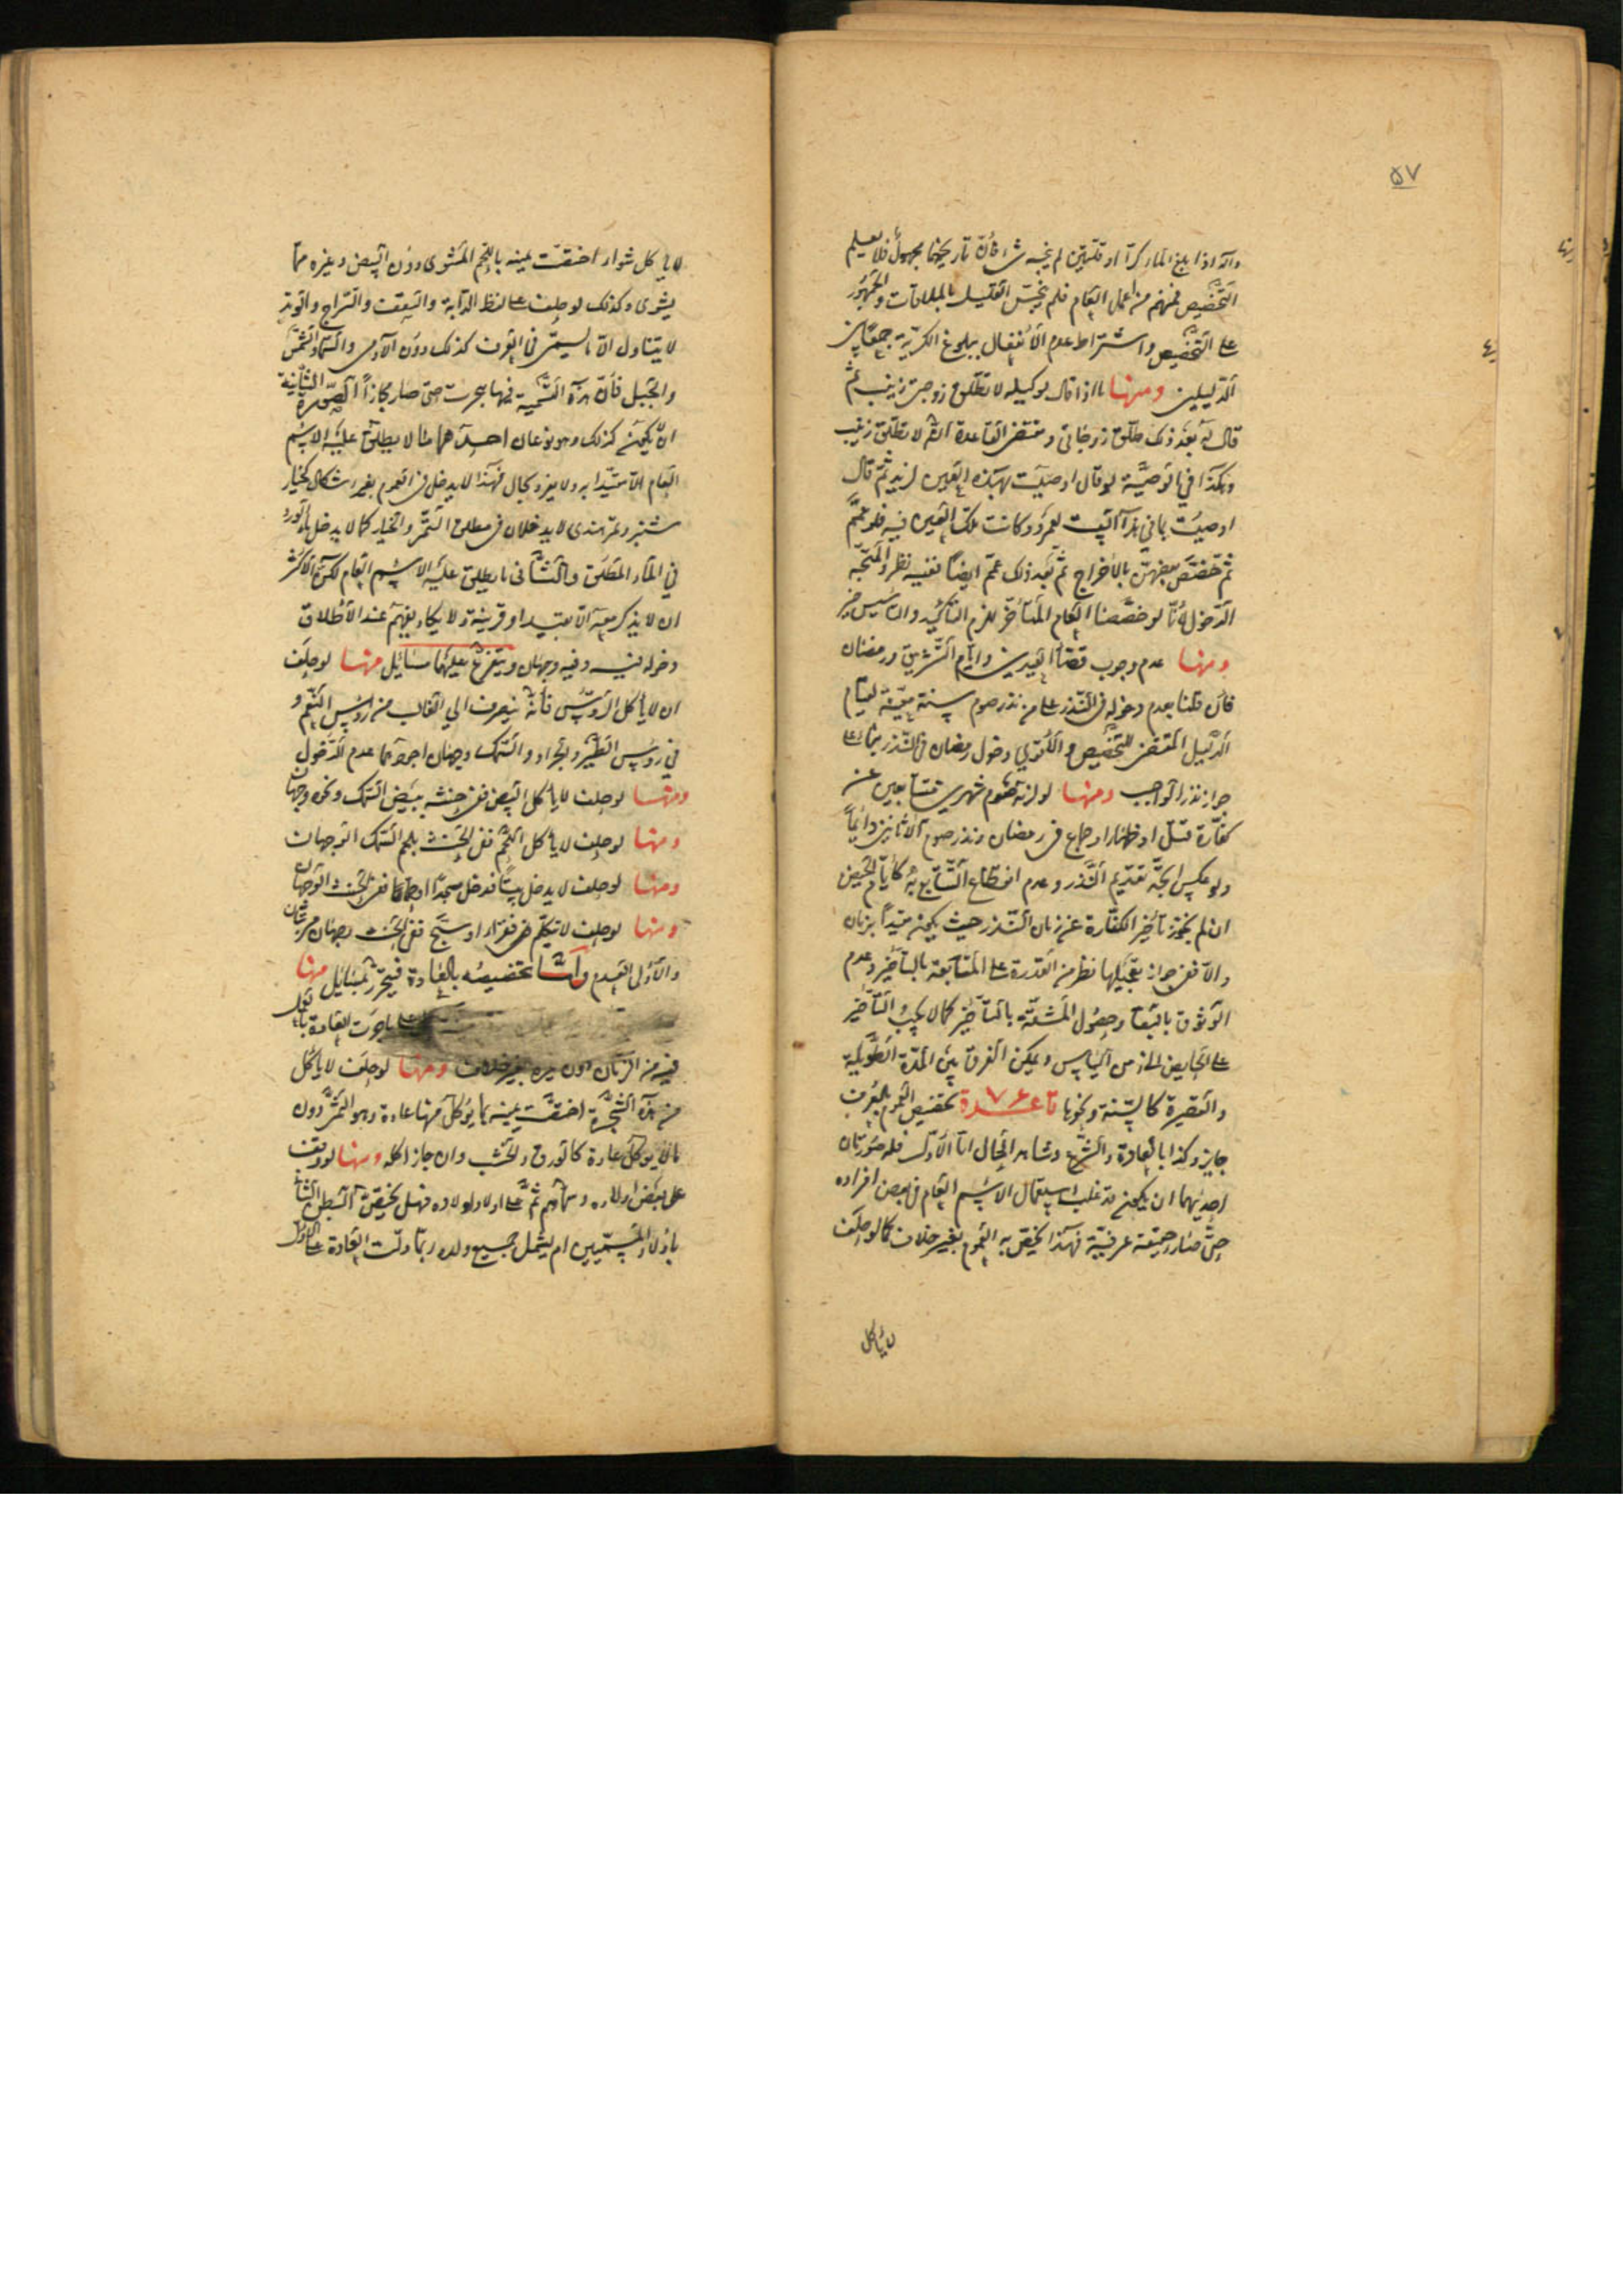 ٥٧
وانه اذا بلغ الماء كرّا او قلّتين لم ينجسه شئ فانّ تاريخهما مجهول فلا يعلم
التّخصيص فمنهم من اعمل العام فلم ينجّس القليل بالملاقات والجمهور
على التّخصيص واشتراط عدم الانفعال ببلوغ الكريّة جمعا بين
الدّليلين ومنها ما اذا قال لوكيله لا تطلّق زوجتى زينب ثم
قال له بعد ذلك طلّق زوجاتى ومقتضى القاعدة انّه لا تطلّق زينب
وهكذا فى الوصيّة لو قال اوصيت بهذه العين لزيد ثم قال
اوصيت بما فى هذا البيت لعمرو وكانت تلك العين فيه فلو عمّم
ثم خصّص بعضهنّ بالاخراج ثم بعد ذلك عمّم ايضا ففيه نظر والمتّجه
الدّخول لانّا لو خصّصنا العام المتأخّر لزم التأكيد والتأسيس خير
ومنها عدم وجوب قضاء العيدين وايّام التّشريق ورمضان
فان قلنا بعدم دخوله فى النّذر على من نذر صوم سنة معيّنة لقيام
الدّليل المقتضى للتّخصيص والاقوى دخول رمضان فى النّذر بناء على
جواز نذر الواجب ومنها لو لزمه صوم شهرين متتابعين عن
كفّارة قتل او ظهار او جماع فى رمضان ونذر صوم الاثانين دائما
ولو عكس اتّجه تقديم النّذر وعدم انقطاع التّتابع به كايّام الحيض
ان لم يجوز تأخير الكفّارة عن زمان النّذر حيث يكون مقيّدا بزمان
والّا ففى جواز تعجيلها نظر من القدرة على المتابعة بالتأخير وعدم
الوثوق بالبقاء وحصول المشقّة بالتأخير كما لا يجب التأخير
على الحايض الى زمن اليأس ويمكن الفرق بين المدّة الطّويلة
والقصيرة كالسّنة ونحوها قاعدة ٧٦ تخصيص العموم بالعرف
جايز وكذا بالعادة والشّرع وشاهد الحال امّا الاوّل فله صورتان
احديهما ان يكون قد غلب استعمال الاسم العام فى بعض افراده
حتّى صار حقيقة عرفيّة فهذا يخصّ به العموم بغير خلاف كما لو حلف
لا يأكل
لا يأكل شواء اختصّت يمينه باللحم المشوى دون البيض وغيره ممّا
يشوى وكذلك لو حلف على لفظ الدّابة والسّقف والسّراج والوتد
لا يتناول الّا ما يسمّى فى العرف كذلك دون الآدمى والسّماء والشّمس
والجبل فانّ هذه التّسمية فيها هجرت حتّى صار مجازا الصّورة الثّانية
ان لا يكون كذلك وهو نوعان احدهما ما لا يطلق عليه الاسم
العام الّا مقيّدا به ولا يفرد بحال فهذا لا يدخل فى العموم بغير اشكال كخيار
شنبر وتمر هندى لا يدخلان فى مطلق التّمر والخيار كما لا يدخل ماء الورد
فى الماء المطلق والثّانى ما يطلق عليه الاسم العام لكن الاكثر
ان لا يذكر معه الّا بقيد او قرينة ولا يكاد يفهم عند الاطلاق
دخوله فيه وفيه وجهان ويتفرّع عليهما مسائل منها لو حلف
ان لا يأكل الرّؤس فانّه ينصرف الى الغالب من رؤس النّعم و
فى رؤس الطّير والجراد والسّمك وجهان اجودهما عدم الدّخول
ومنها لو حلف لا يأكل البيض ففى حنثه ببيض السّمك ونحوه وجهان
ومنها لو حلف لا يأكل اللّحم ففى الحنث بلحم السّمك الوجهان
ومنها لو حلف لا يدخل بيتا فدخل مسجدا او حمّاما ففى الحنث الوجهان
ومنها لو حلف لا يتكلّم فقرأ او سبّح ففى الحنث وجهان مرتّبان
والاولى العدم وامّا تخصيصه بالعادة فيتحرّز بمسائل منها
على ما جرت العادة بان
فيه من الزّمان دون غيره بغير خلاف ومنها لو حلف لا يأكل
من هذه الشّجرة اختصّت يمينه بما يؤكل منها عادة وهو الثّمر دون
ما لا يؤكل عادة كالورق والخشب وان جاز اكله ومنها لو وقف
على بعض اولاده وسمّاهم ثمّ على اولاد اولاده فهل يختصّ البطن الثّانى
باولاد المسمّين ام يشمل جميع ولده ربّما دلّت العادة على الاوّل